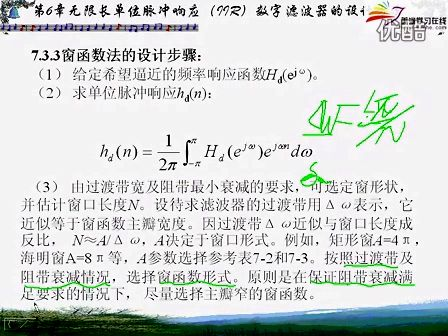 第6章无限长单位脉冲响应 (IIR) 数字滤波器的设计
7.3.3窗函数法的设计步骤:
(1) 给定希望逼近的频率响应函数Hd(ejω)。
(2) 求单位脉冲响应hd(n):
hd(n) = 1/2π ∫-ππ Hd(ejω)ejωndω
(3) 由过渡带宽及阻带最小衰减的要求,可选定窗形状,
并估计窗口长度N。设待求滤波器的过渡带用Δω表示,它
近似等于窗函数主瓣宽度。因过渡带Δω近似与窗口长度成
反比, N≈A/Δω,A决定于窗口形式。例如,矩形窗A=4π,
海明窗A=8π等,A参数选择参考表7-2和7-3。按照过渡带及
阻带衰减情况,选择窗函数形式。原则是在保证阻带衰减满
足要求的情况下, 尽量选择主瓣窄的窗函数。